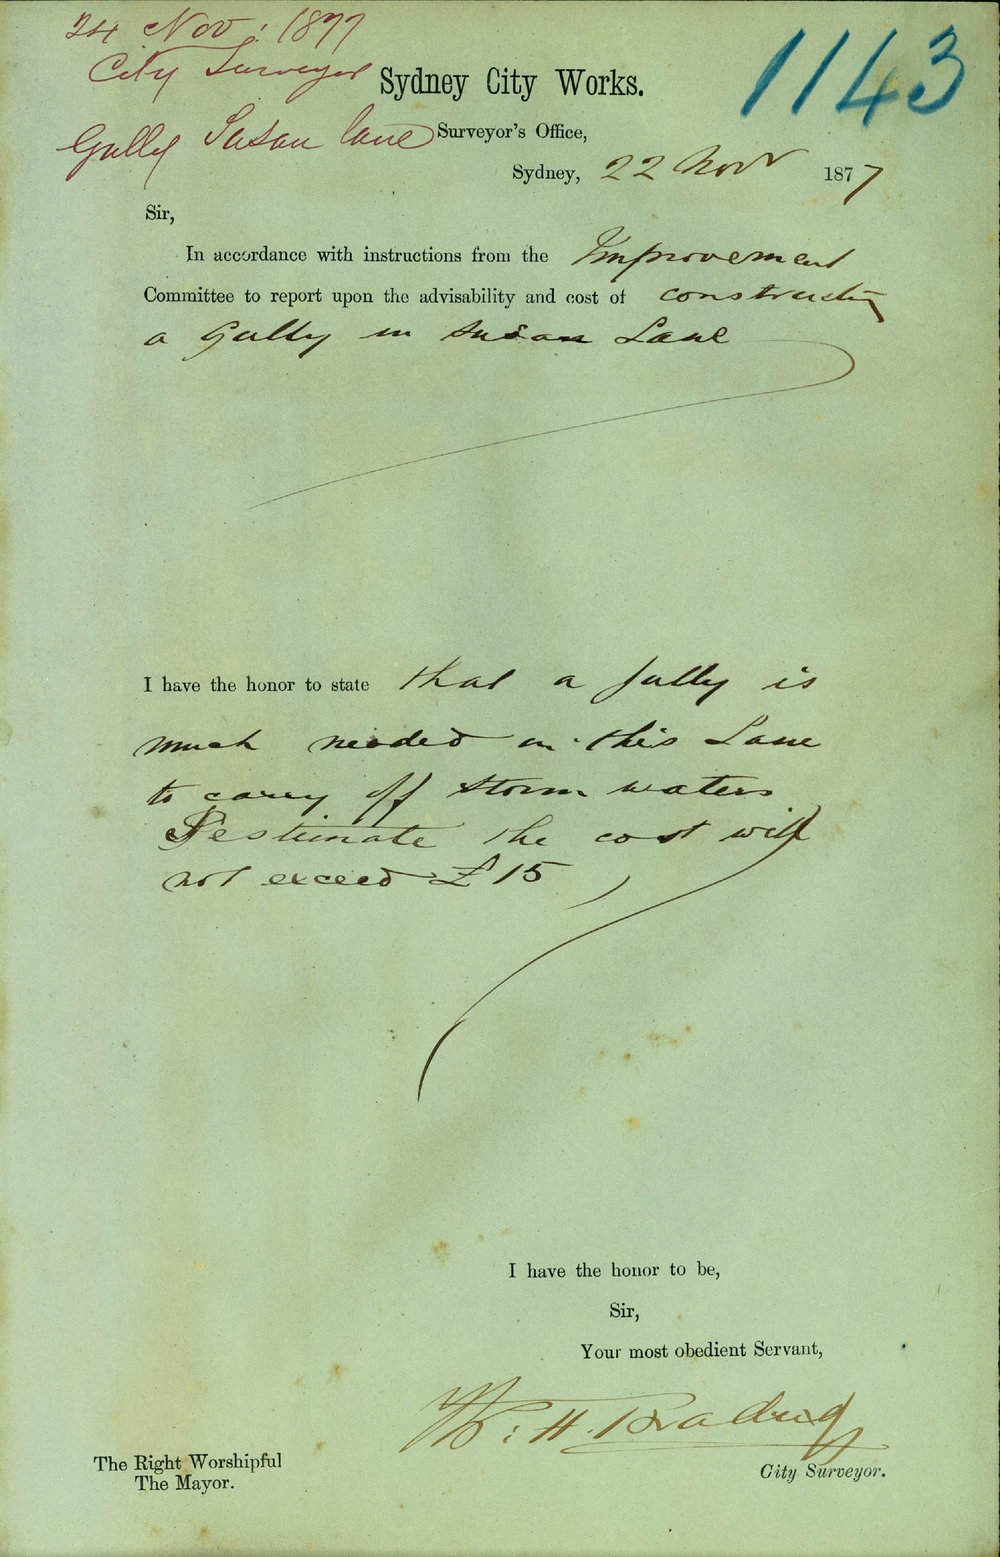 24 Nov: 1877
City Surveyor
Gully Susan lane
1143
Sydney City Works.
Surveyor's Office,
Sydney, 22 Novr 1877
Sir,
In accordance with instructions from the Improvement
Committee to report upon the advisability and cost of constructing
a Gully in Susan Lane
I have the honor to state that a Gully is
much needed in this Lane
to carry off storm waters
I estimate the cost will
not exceed £15
I have the honor to be,
Sir,
Your most obedient Servant,
W. H.
City Surveyor.
The Right Worshipful
The Mayor.